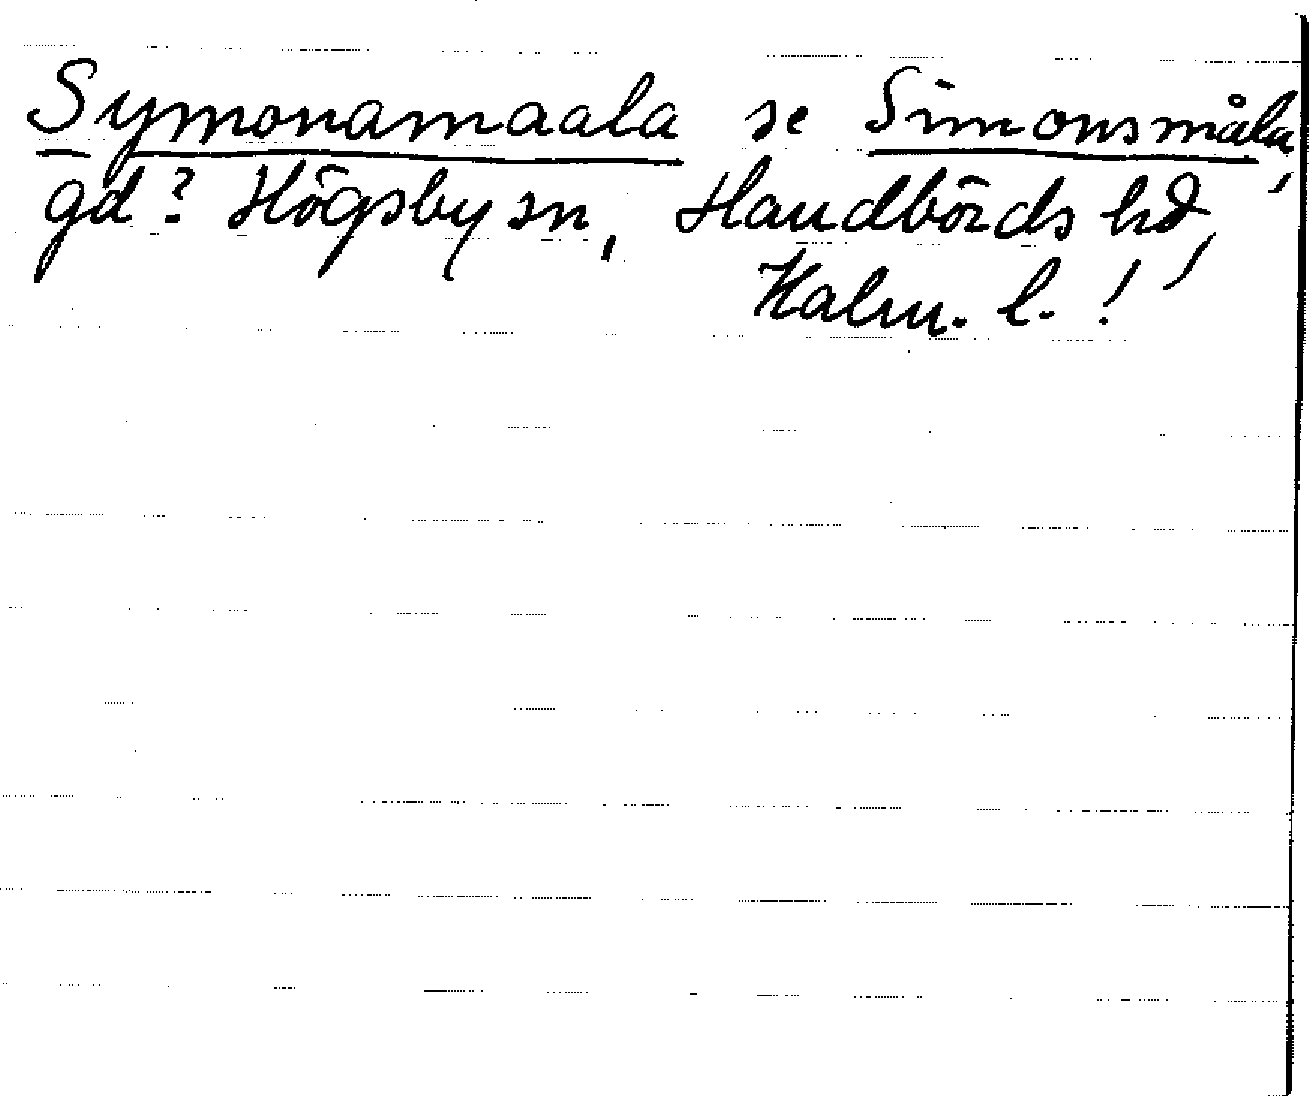 Symonamaala se Simonsmåla,
gd? Högsby sn, Handbörds hd,
Kalm. l. !